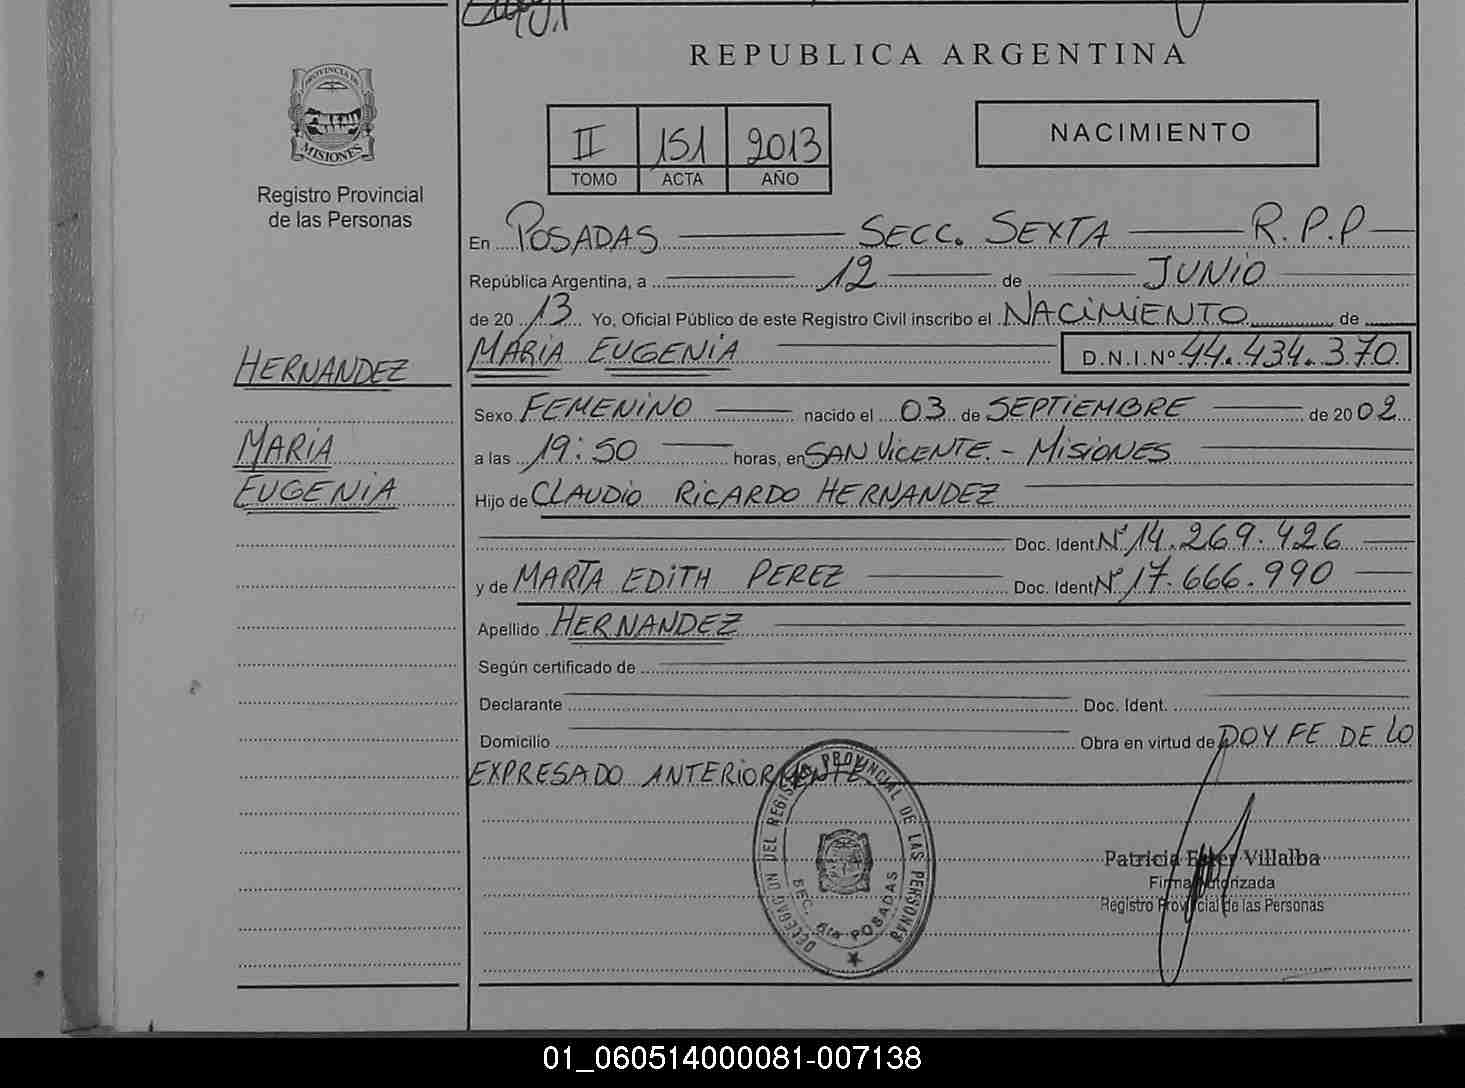 REPUBLICA ARGENTINA
PROVINCIA DE
MISIONES
Registro Provincial
de las Personas
II 151 2013
TOMO ACTA AÑO
NACIMIENTO
En POSADAS SECC. SEXTA R.P.P
República Argentina, a 12 de JUNIO
de 20 13 Yo, Oficial Público de este Registro Civil inscribo el NACIMIENTO de
MARIA EUGENIA D.N.I.Nº 44.434.370
HERNANDEZ
MARIA
EUGENIA
Sexo FEMENINO nacido el 03 de SEPTIEMBRE de 20 02
a las 19:50 horas, en SAN VICENTE.- MISIONES
Hijo de CLAUDIO RICARDO HERNANDEZ
Doc. Ident Nº 14.269.426
y de MARTA EDITH PEREZ Doc. Ident Nº 17.666.990
Apellido HERNANDEZ
Según certificado de
Declarante Doc. Ident.
Domicilio Obra en virtud de DOY FE DE LO
EXPRESADO ANTERIORMENTE
DELEGACION DEL REGISTRO PROVINCIAL DE LAS PERSONAS
SEC. 6ta POSADAS
Patricia Ester Villalba
Firma Autorizada
Registro Provincial de las Personas
01_060514000081-007138